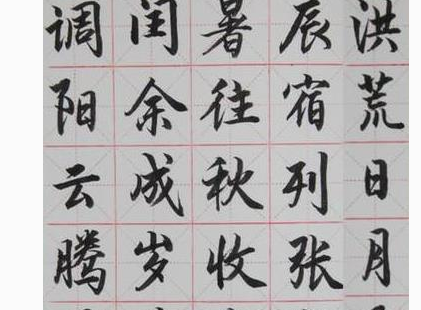 洪荒日月
辰宿列张
暑往秋收
闰余成岁
调阳云腾